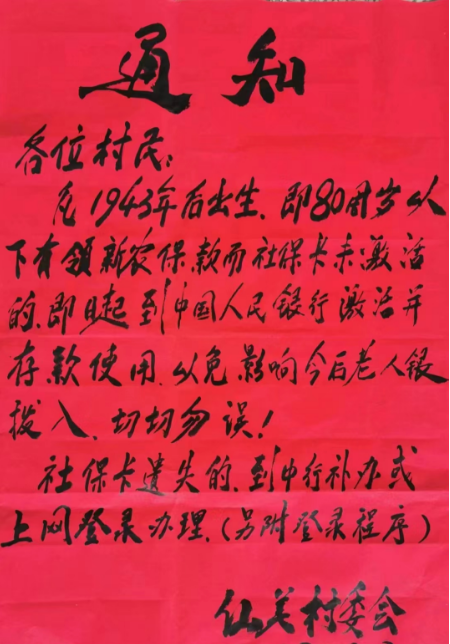 通知
各位村民：
凡1943年后出生、即80周岁以
下有领新农保款而社保卡未激活
的、即日起到中国人民银行激活并
存款使用、以免影响今后老人银
拨入、切切勿误！
社保卡遗失的、到中行补办或
上网登录办理、(另附登录程序)
仙美村委会